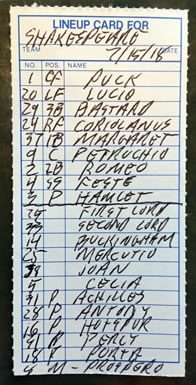 LINEUP CARD FOR
SHAKESPEARE 7/15/18
TEAM DATE
NO. POS. NAME
1 CF PUCK
20 LF LUCIO
29 3B BASTARD
24 RF CORIOLANUS
37 1B MARGARET
9 C PETRUCHIO
2 2B ROMEO
4 SS FESTE
3 P HAMLET
FIRST LORD
SECOND LORD
14 BUCKINGHAM
25 MERCUTIO
JOAN
5 CELIA
31 P ACHILLES
28 P ANTONY
16 P HOTSPUR
P PERCY
18 P PORTIA
M - PROSPERO